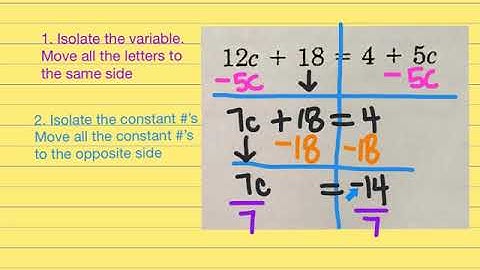 1. Isolate the variable.
Move all the letters to
the same side
2. Isolate the constant #'s
Move all the constant #'s
to the opposite side
12c + 18 = 4 + 5c
-5c - 5c
7c +18 = 4
-18 -18
7c = -14
7 7